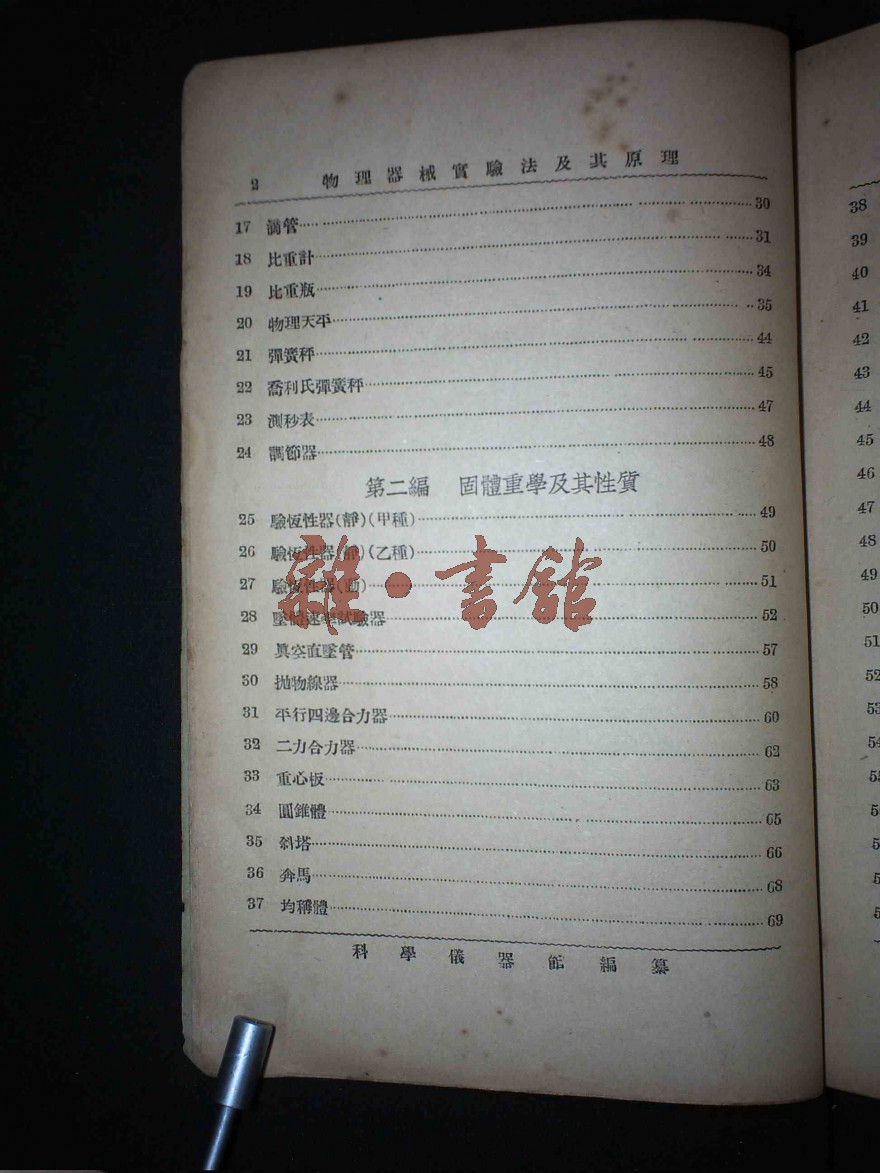 2 物理器械實驗法及其原理
17 滴管 30
18 比重計 31
19 比重瓶 34
20 物理天平 35
21 彈簧秤 44
22 喬利氏彈簧秤 45
23 測秒表 47
24 調節器 48
第二編 固體重學及其性質
25 驗恆性器(靜)(甲種) 49
26 驗恆性器(靜)(乙種) 50
27 驗恆性器(動) 51
28 墜體速率試驗器 52
29 眞空直墜管 57
30 拋物線器 58
31 平行四邊合力器 60
32 二力合力器 62
33 重心板 63
34 圓錐體 65
35 斜塔 66
36 奔馬 68
37 均稱體 69
科學儀器館編纂
雜·書館
38
39
40
41
42
43
44
45
46
47
48
49
50
51
52
53